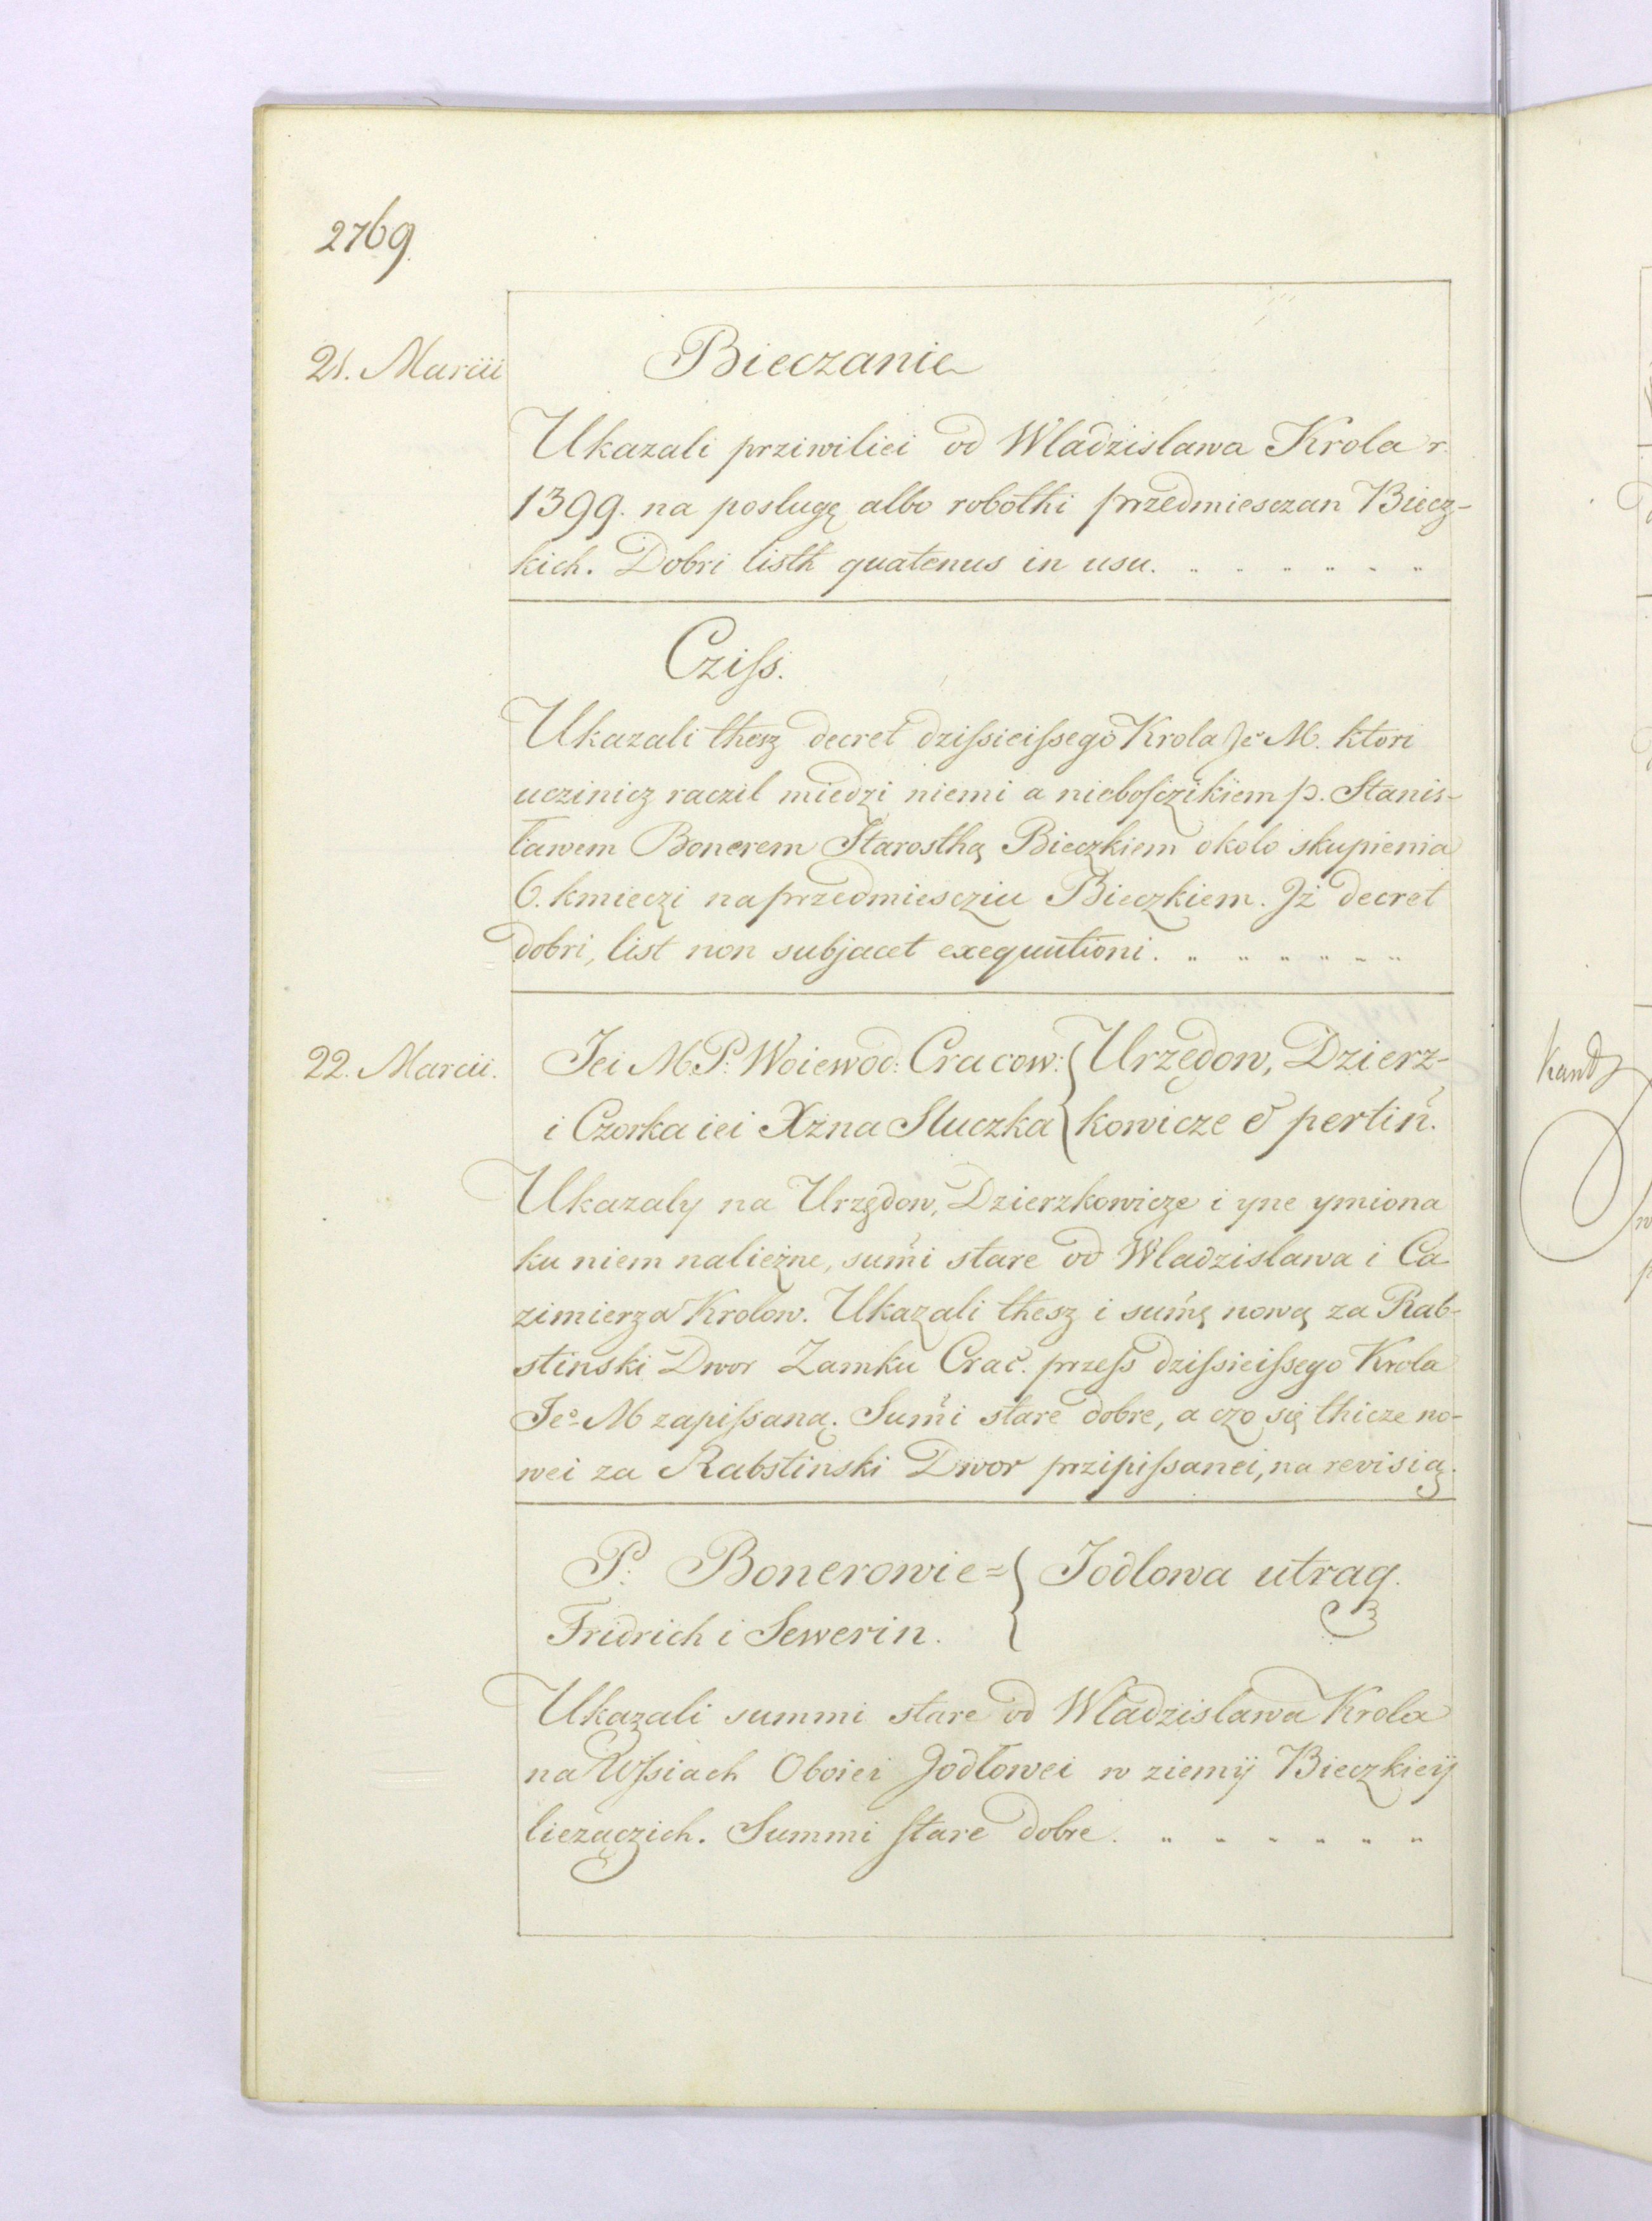 2769.
21. Marcii
Bieczanie
Ukazali prziwiliei od Wladzislawa Krola r.
1399. na poslugę albo robothi przedmiesczan Biecz-
kich. Dobri listh quatenus in usu.
Cziſs.
Ukazali thesz decret dziſsieiſsego Krola Je° M. ktori
uczinicz raczil miedzi niemi a nieboſczikiem p. Stanis-
ławem Bonerem Starosthą Bieczkiem okolo skupienia
6. kmieczi na przedmiescziu Bieczkiem. Jż decret
dobri, list non subjacet exequutioni.
22. Marcii.
Jei M. P. Woiewod: Cracow: { Urzędow, Dzierz-
i Czorka iei Xżna Sluczka { kowicze & pertiñ.
Ukazaly na Urzędow, Dzierzkowicze i yne ymiona
ku niem należne, sum̃i stare od Wladzislawa i Ca
zimierza Krolow. Ukazali thesz i sum̃ę nową za Rab-
stinski Dwor Zamku Crac̃. przeſs dziſsieiſsego Krola
Je° M zapiſsaną. Sum̃i stare dobre, a czo się thicze no-
wei za Rabstinski Dwor przipiſsanei, na revisią.
P. Bonerowie = { Jodlowa utraq.
Fridrich i Sewerin.
Ukazali summi stare od Wladzislawa Krola
na Wſsiach Oboiei Jodłowei w ziemÿ Bieczkieÿ
liezączich. Summi ſtare dobre.